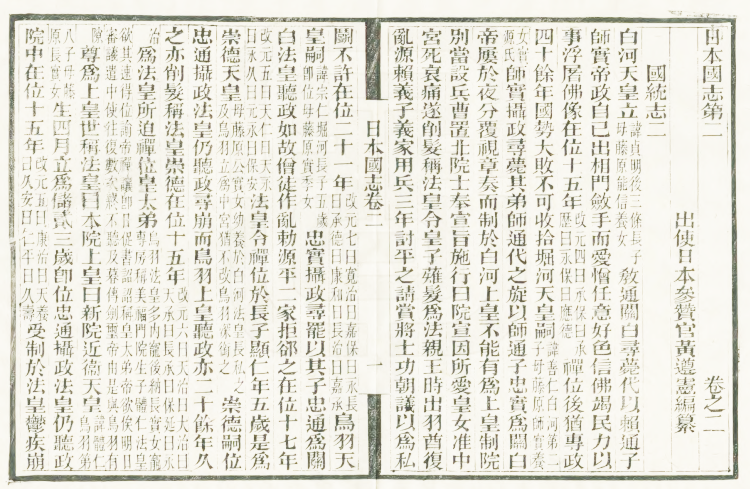 日本國志第二 卷之二
出使日本參贊官黃遵憲編纂
國統志二
白河天皇立諱貞明後三條長子母藤原能信養女敎通關白尋薨代以賴通子
師實帝政自己出相門斂手而愛憎任意好色信佛竭民力以
事浮屠佛像在位十五年改元四曰承保曰承曆曰永保曰應德禪位後猶專政
四十餘年國勢大敗不可收拾堀河天皇嗣諱善仁白河第二子母藤原師實養
女實源氏師實攝政尋薨其弟師通代之旋以師通子忠實爲關白
帝屢於夜分覆視章奏而制於白河上皇不能有爲上皇制院
別當設兵曹置北院士奉宣旨施行曰院宣因所愛皇女准中
宮死哀痛遂削髮稱法皇令皇子薙髮爲法親王時出羽酋復
亂源賴義子義家用兵三年討平之請賞將士功朝議以爲私
日本國志卷二 一
鬬不許在位二十一年改元七曰寬治曰嘉保曰永長曰承德曰康和曰長治曰嘉承鳥羽天
皇嗣諱宗仁堀河長子五歲卽位母藤原實季女忠實攝政尋罷以其子忠通爲關
白法皇聽政如故僧徒作亂勅源平二家拒郤之在位十七年
改元五曰天仁曰天永曰永久曰元永曰保安法皇令禪位於長子顯仁年五歲是爲
崇德天皇母藤原公實女幼養於白河法皇長私之及鳥羽立爲中宮猜不改鳥羽銜之崇德嗣位
忠通攝政法皇仍聽政尋崩而鳥羽上皇聽政亦二十餘年久
之亦削髮稱法皇崇德在位十五年改元六曰天治曰大治曰天承曰長承曰保延曰永
治爲法皇所迫禪位皇太弟鳥羽法皇多內寵後納長實女寵專房稱美福門院生子體仁法皇
欲其速得位諭帝禪讓卽日促書詔詔稱皇太弟帝欲候明日審議遣中使往復數次終不聽及暮傳劍璽帝由是與鳥羽有
隙尊爲上皇世稱法皇曰本院上皇曰新院近衞天皇諱體仁鳥羽第
八子母藤原長實女生四月立爲儲貳三歲卽位忠通攝政法皇仍聽政
院中在位十五年改元五曰康治曰天養曰久安曰仁平曰久壽受制於法皇鬱疾崩